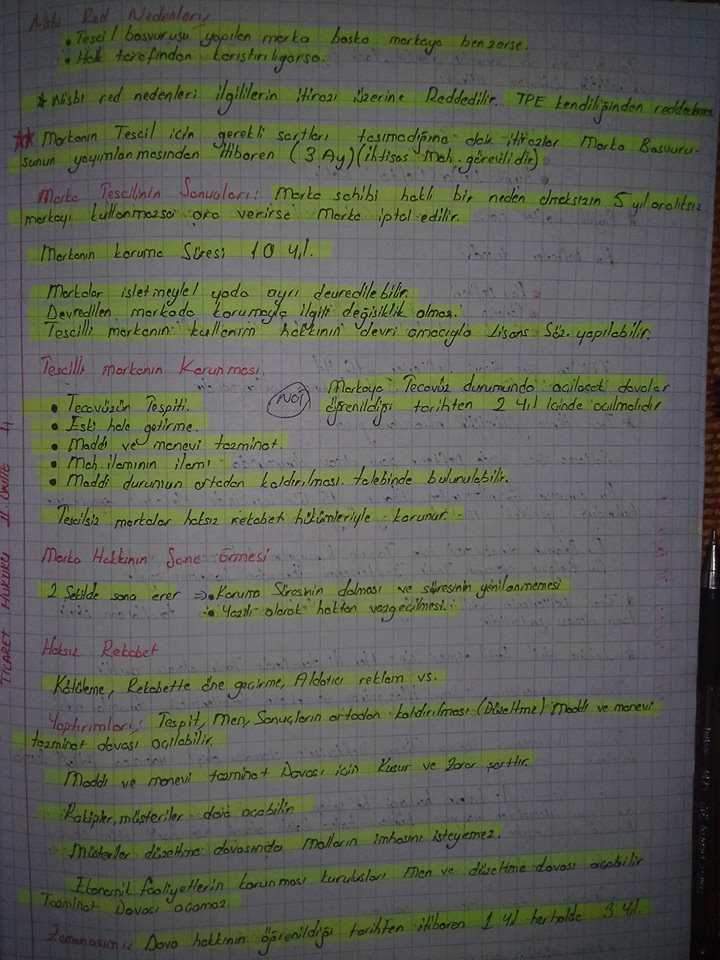 Nisbi Red Nedenleri
• Tescil başvurusu yapılan marka başka markaya benzerse.
• Halk tarafından karıştırılıyorsa.
★ Nisbi red nedenleri ilgililerin itirazı üzerine Reddedilir. TPE kendiliğinden reddedemez
★★ Markanın Tescil için gerekli şartları taşımadığına dair itirazlar Marka Başvuru-
sunun yayımlanmasından itibaren (3 Ay) (ihtisas Mah. görevlidir)
Marka Tescilinin Sonuçları: Marka sahibi haklı bir neden olmaksızın 5 yıl aralıksız
markayı kullanmazsa ara verirse Marka iptal edilir.
Markanın koruma Süresi 10 yıl.
Markalar işletmeyle yada ayrı devredilebilir.
Devredilen markada korumayla ilgili değişiklik olmaz.
Tescilli markanın kullanım hakkının devri amacıyla Lisans Söz. yapılabilir.
Tescilli markanın Korunması
NOT Markaya Tecavüz durumunda açılacak davalar
öğrenildiği tarihten 2 yıl içinde açılmalıdır
• Tecavüzün Tespiti.
• Eski hale getirme.
• Maddi ve manevi tazminat.
• Mah. ilamının ilamı
• Maddi durumun ortadan kaldırılması talebinde bulunulabilir.
Tescilsiz markalar haksız rekabet hükümleriyle korunur.
Marka Hakkının Sona Ermesi
2 Şekilde sona erer ⇒ • Koruma Süresinin dolması ve süresinin yenilenmemesi
• Yazılı olarak haktan vazgeçilmesi.
Haksız Rekabet
Kötüleme, Rekabette öne geçirme, Aldatıcı reklam vs.
Yaptırımları: Tespit, Men, Sonuçların ortadan kaldırılması (Düzeltme) Maddi ve manevi
tazminat davası açılabilir.
Maddi ve manevi tazminat Davası için Kusur ve Zarar şarttır.
Rakipler, müşteriler dava açabilir
Müşteriler düzeltme davasında Malların imhasını isteyemez.
Ekonomik faaliyetlerin korunması kuruluşları Men ve düzeltme davası açabilir
Tazminat Davası açamaz
Zamanaşımı: Dava hakkının öğrenildiği tarihten itibaren 1 yıl herhalde 3 yıl.
TİCARET HUKUKU II ÜNİTE 4